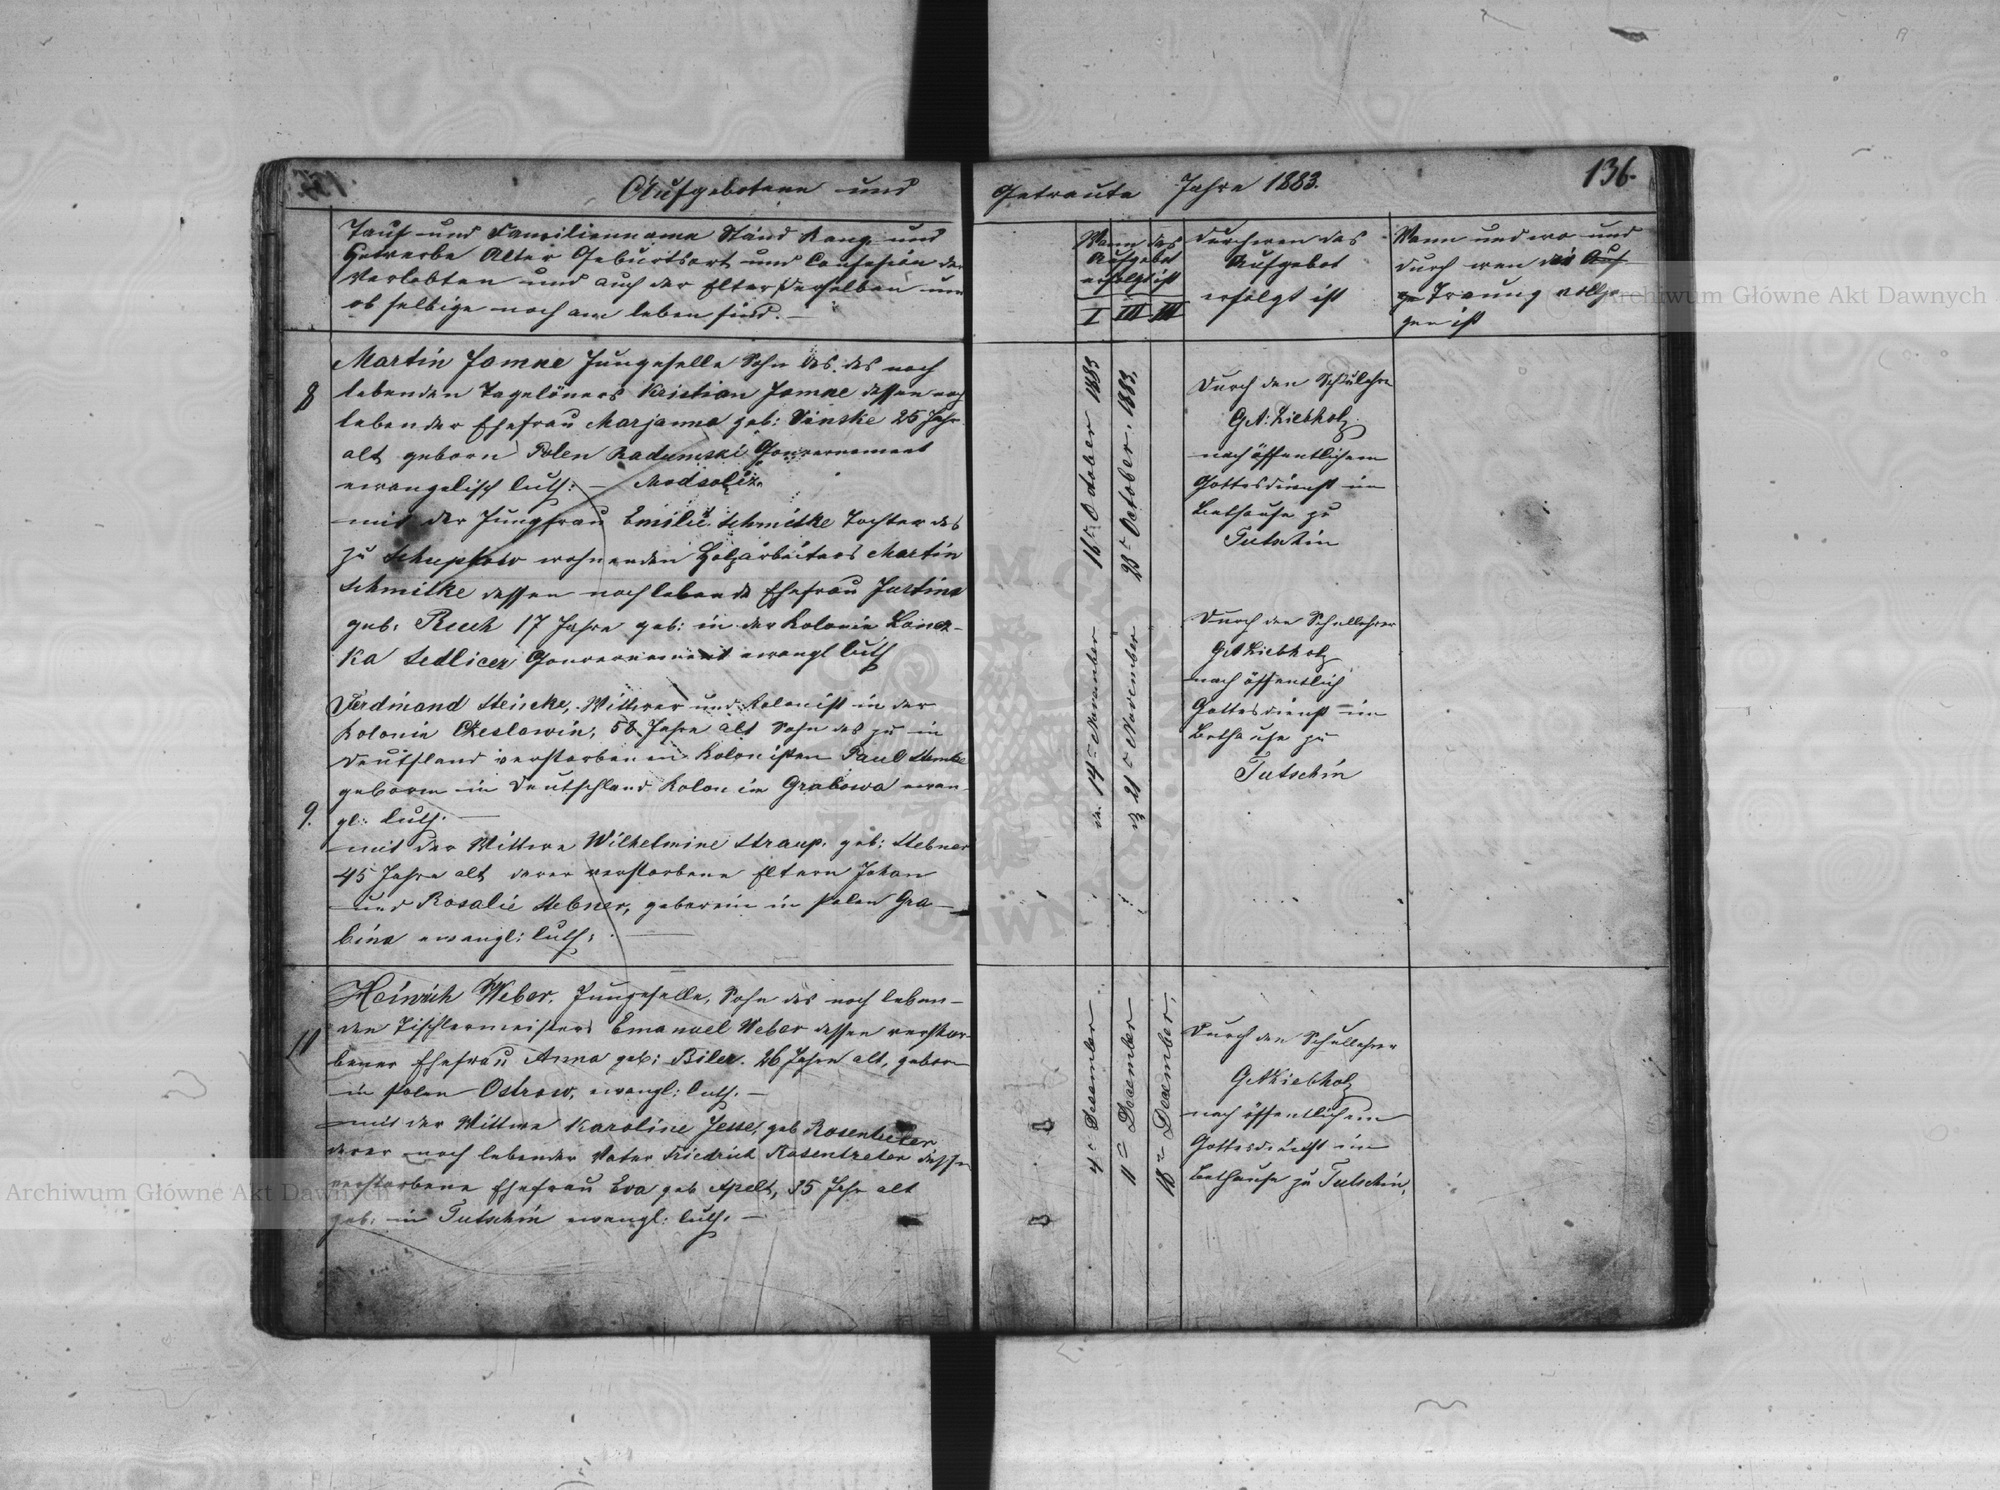 Aufgebotene und
Getraute Jahre 1883.
136.
Tauf und Familienname Stand Rang und
Gewerbe Alter Geburtsort und Confession der
Verlobten und auch der Elter derselben und
ob selbige noch am leben sind. —
Wann das
Aufgebot
erfolgt ist
I II III
durch wen das
Aufgebot
erfolgt ist
Wann und wo und
durch wen die Auf
ge Trauung vollzo
gen ist
8
Martin Jamke Junggeselle Sohn des des noch
lebenden Tagelöners Kristian Jamke dessen noch
lebender Ehefrau Marjanna geb: 25 Jahr
alt geborn Polen Radumski Gouvernement
ewangelisch luth: —
mit der Jungfrau Emilie Schmitke Tochter des
zu wohnenden Holzarbeiters Martin
Schmitke dessen noch lebende Ehefrau Justina
geb: 17 Jahre geb: in der Kolonie
ka Sedlicer Gouvernement ewangl luth
16ten October 1883
23ten October. 1883.
Durch den Schulehrer
G.A. Liebholz
nach öffentlichem
Gottesdienst im
Bethause zu
Tutschin
9.
Ferdinand Steincke, Wittwer und Kolonist in der
Kolonie 58 Jahre alt Sohn des zu in
Deutschland verstorbenen Kolonisten Paul
geboren in Deutschland Kolonie Grabowa ewan
gl: luth. —
mit der Wittwe Wilhelmine Straup. geb: Stebner
45 Jahre alt derer verstorbene Eltern Johan
und Rosalie Stebner, geboren in Polen Gra—
bina ewangl: luth: —
14ten November
21ten November
Durch den Schullehrer
GALiebholz
nach öffentlich
Gottesdienst im
Bethause zu
Tutschin
10
Heinrich Weber. Junggeselle, Sohn des noch leben—
den Tischlermeisters Emanuel Weber dessen verstor-
bener Ehefrau Anna geb: Biler. 26 Jahre alt, geboren
in Polen Ostrow, ewangl: luth. —
mit der Wittwe Karoline Jesse, geb Rosentreter
derer noch lebender Vater Friedrich Rosentreter dessen
verstorbene Ehefrau Eva geb Apelt, 35 Jahr alt
geb: in Tutschin ewangl: luth. —
4ten December
11ten December
18ten December,
Durch den Schullehrer
GALiebholz
nach öffentlichem
Gottesdienst im
Bethause zu Tutschin,
Archiwum Główne Akt Dawnych
Archiwum Główne Akt Dawnych